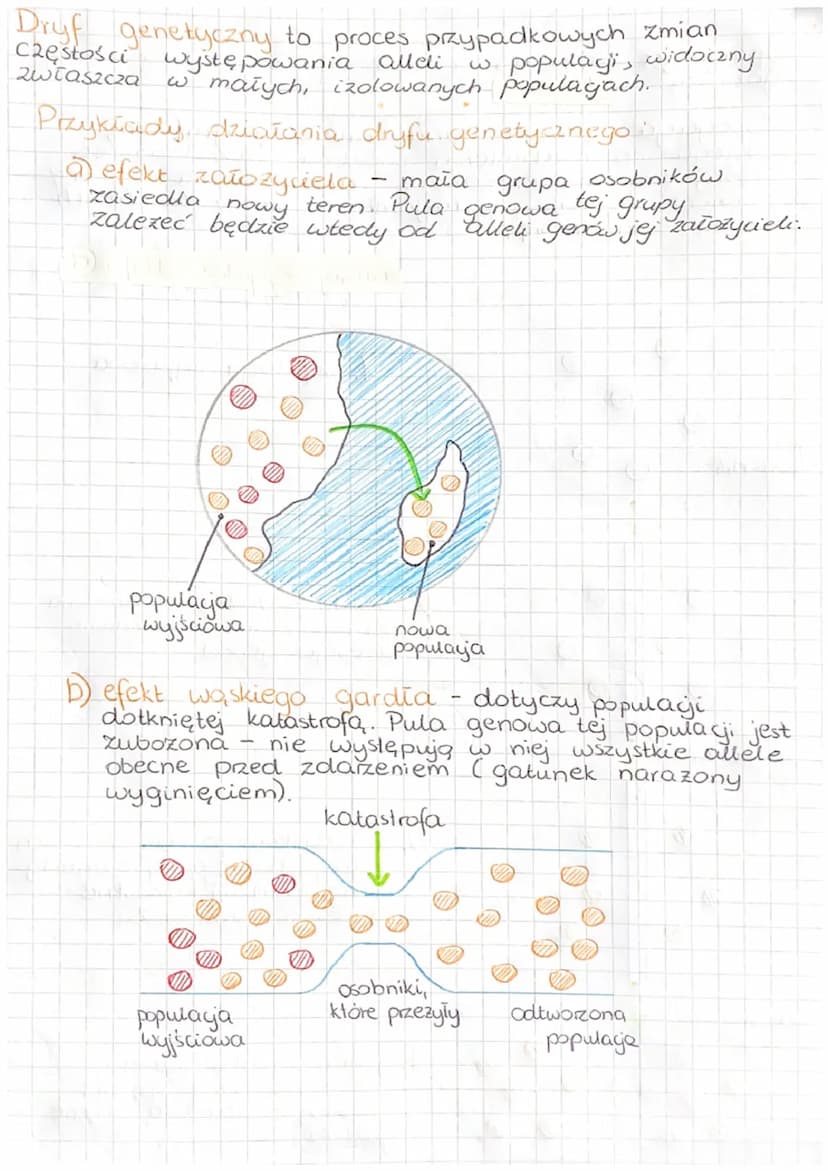 Dryf genetyczny to proces przypadkowych zmian
częstości występowania alleli w populacji, widoczny
zwłaszcza w małych, izolowanych populacjach.
Przykłady działania dryfu genetycznego:
a) efekt założyciela – mała grupa osobników
zasiedla nowy teren. Pula genowa tej grupy
zależeć będzie wtedy od alleli genów jej założycieli.
populacja
wyjściowa
nowa
populacja
b) efekt wąskiego gardła – dotyczy populacji
dotkniętej katastrofą. Pula genowa tej populacji jest
zubożona – nie występują w niej wszystkie allele
obecne przed zdarzeniem (gatunek narażony
wyginięciem).
katastrofa
populacja
wyjściowa
osobniki,
które przeżyły
odtworzona
populacja